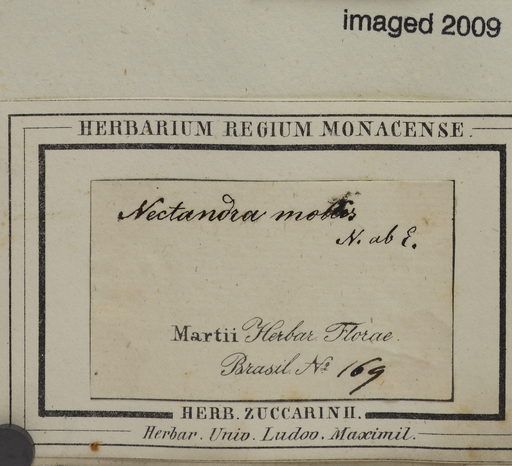 imaged 2009
HERBARIUM REGIUM MONACENSE.
Nectandra mollis
N. ab E.
Martii Herbar. Florae
Brasil. No. 169
HERB. ZUCCARINII.
Herbar. Univ. Ludov. Maximil.